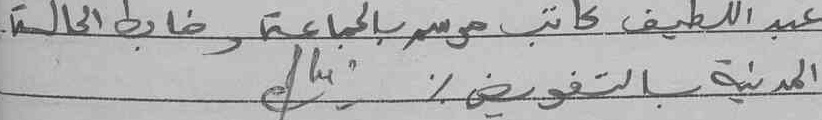 عبد اللطيف كاتب موسم بالجماعة وضابط الحالة
المدنية بالتفويض ./.